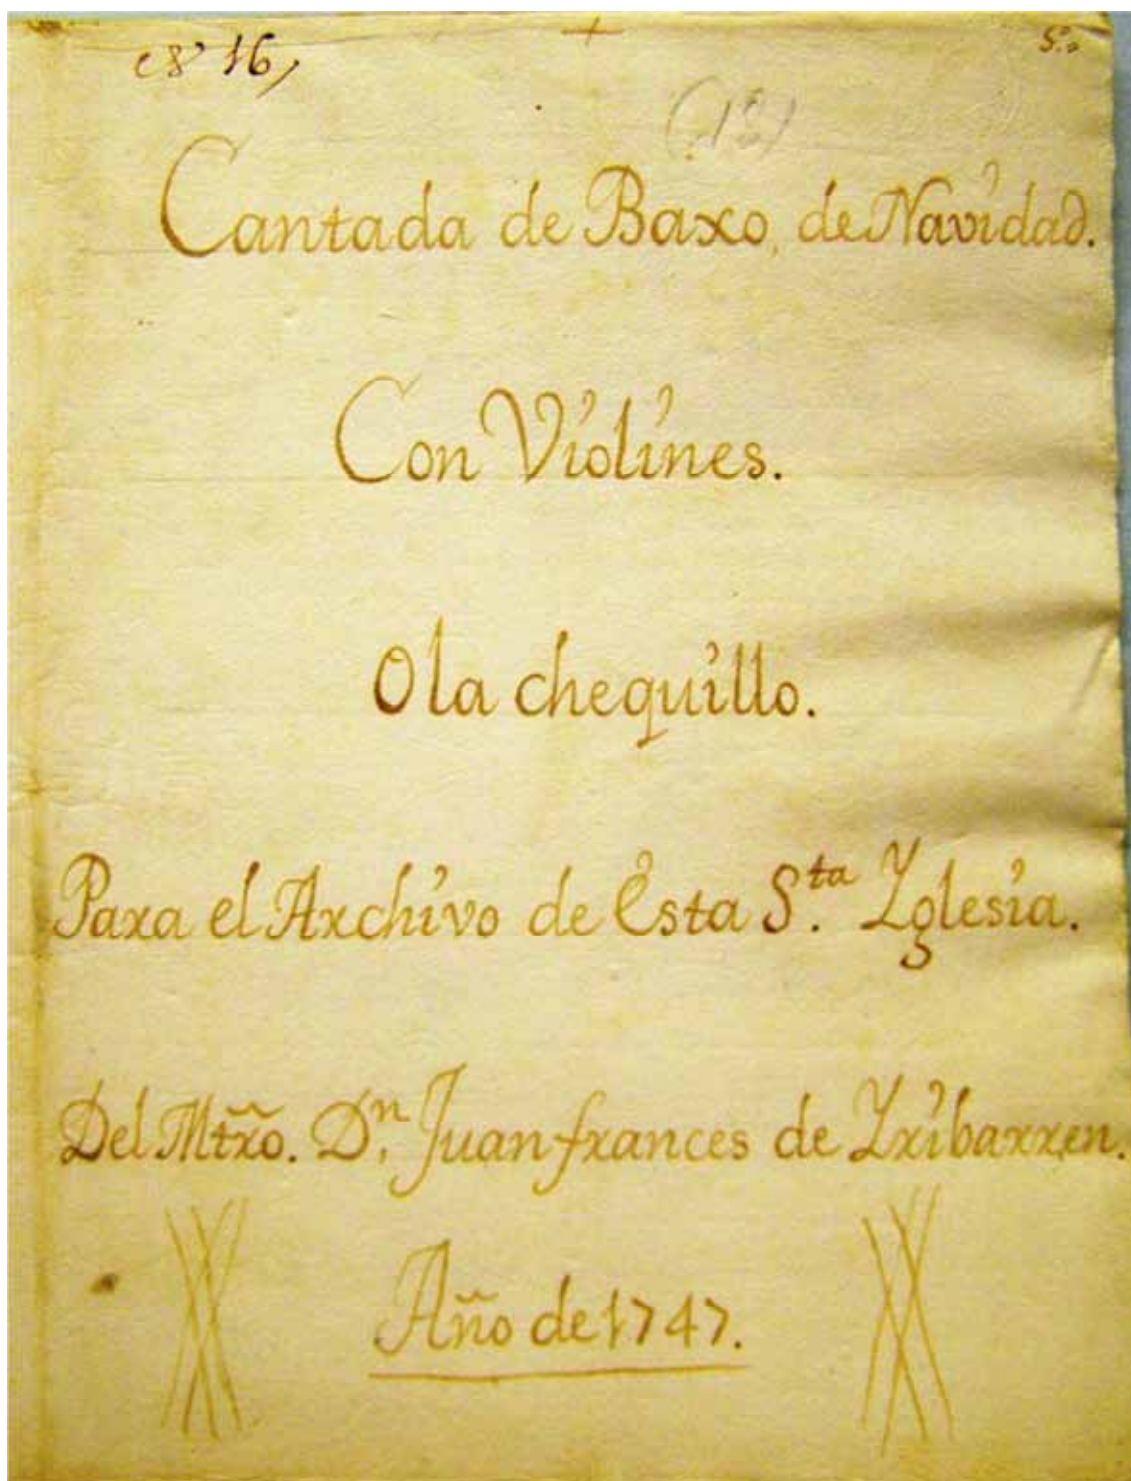 16,
Cantada de Baxo, de Navidad.
Con Violines.
Ola chequillo.
Para el Archivo de Esta S.ta Yglesia.
Del Mtr̃o. D.n Juan frances de Yribarren.
Año de 1747.